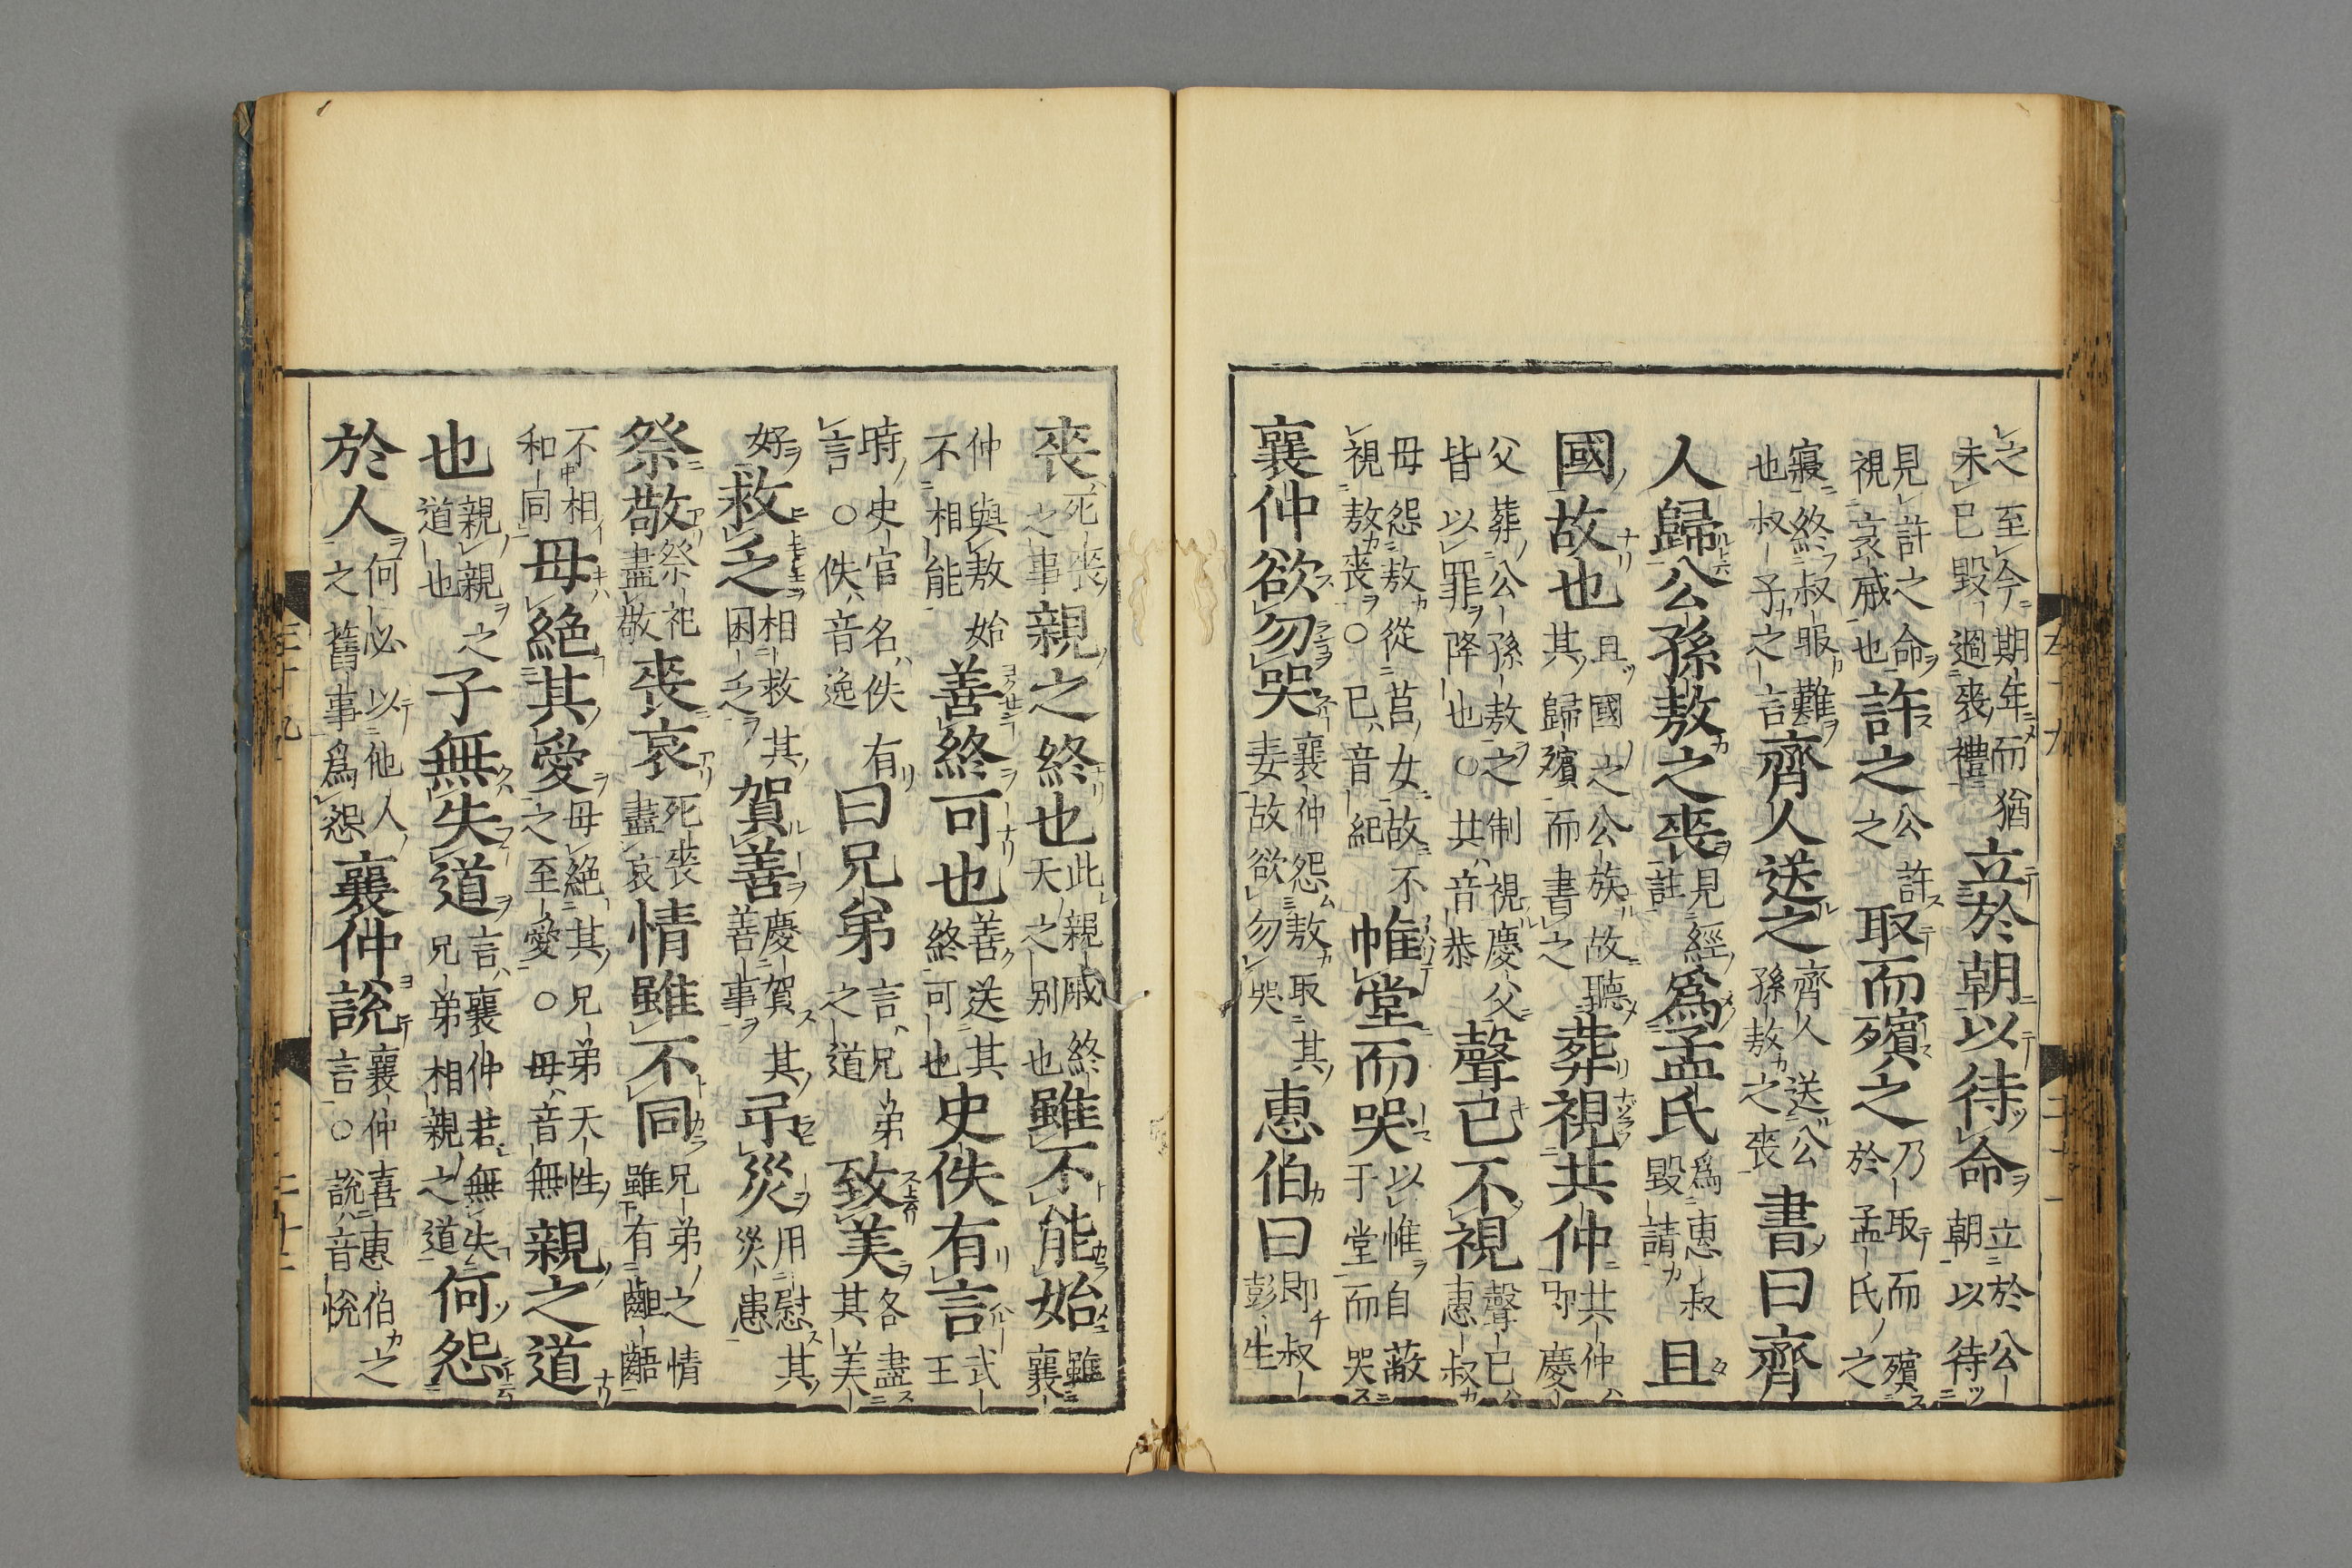 之至今期年而猶未已毀過喪禮立於朝以待命立於公朝以待
見許之命視哀戚也許之公許之取而殯之乃取而殯於孟氏之
寢終叔服難也叔子之言齊人送之齊人送公孫敖之喪書曰齊
人歸公孫敖之喪見經註爲孟氏爲惠叔毀請且
國故也且國之公族故聽其歸殯而書之葬視共仲共仲即慶
父葬公孫敖之制視慶父皆以罪降也○共音恭聲已不視聲已惠叔
母怨敖從莒女故不視敖喪○已音紀帷堂而哭以帷自蔽于堂而哭
襄仲欲勿哭襄仲怨敖取其妻故欲勿哭惠伯曰即叔彭生
喪死喪之事親之終也此親戚終天之別也雖不能始雖襄
仲與敖始不相能善終可也善送其終可也史佚有言武王
時史官名佚有言○佚音逸曰兄弟言兄弟之道致美各盡其美
好救乏相救其困乏賀善慶賀其善事弔災用慰其災患
祭敬祭祀盡敬喪哀死喪盡哀情雖不同兄弟之情雖有齟齬
不相和同毋絕其愛毋絕其兄弟天性之至愛○毋音無親之道
也親親之道也子無失道言襄仲若無失兄弟相親之道何怨
於人何必以他人之舊事爲怨襄仲說襄仲喜惠伯之言○說音悅